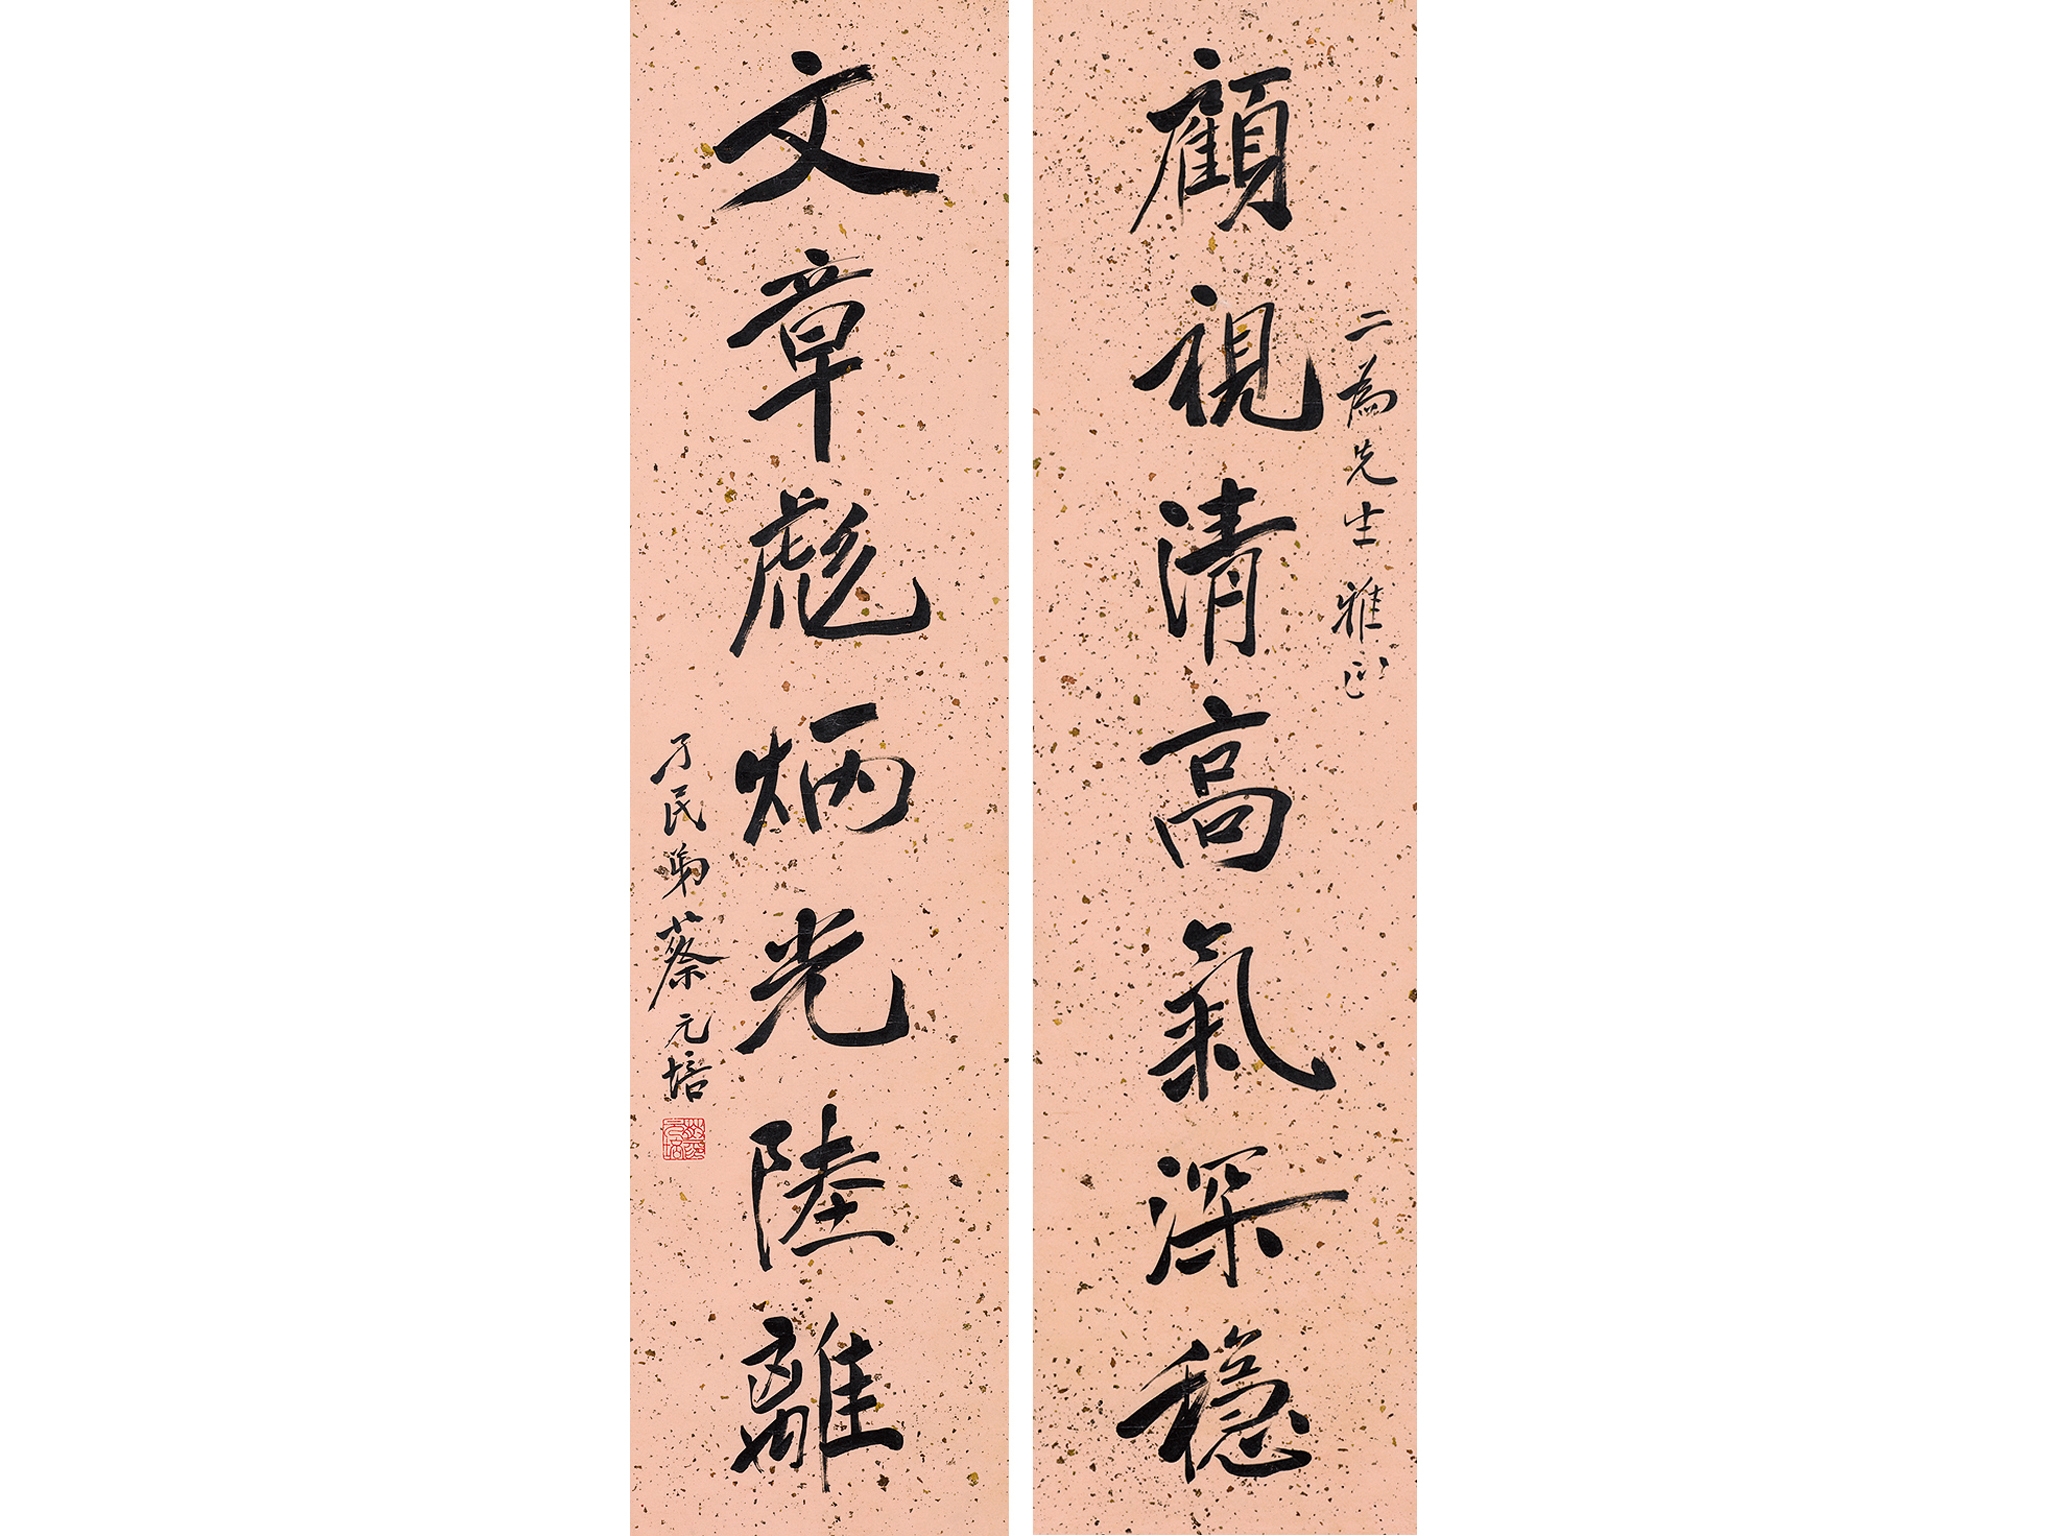 二為先生雅正
顧視清高氣深穩
文章彪炳光陸離
孑民弟蔡元培
蔡元培